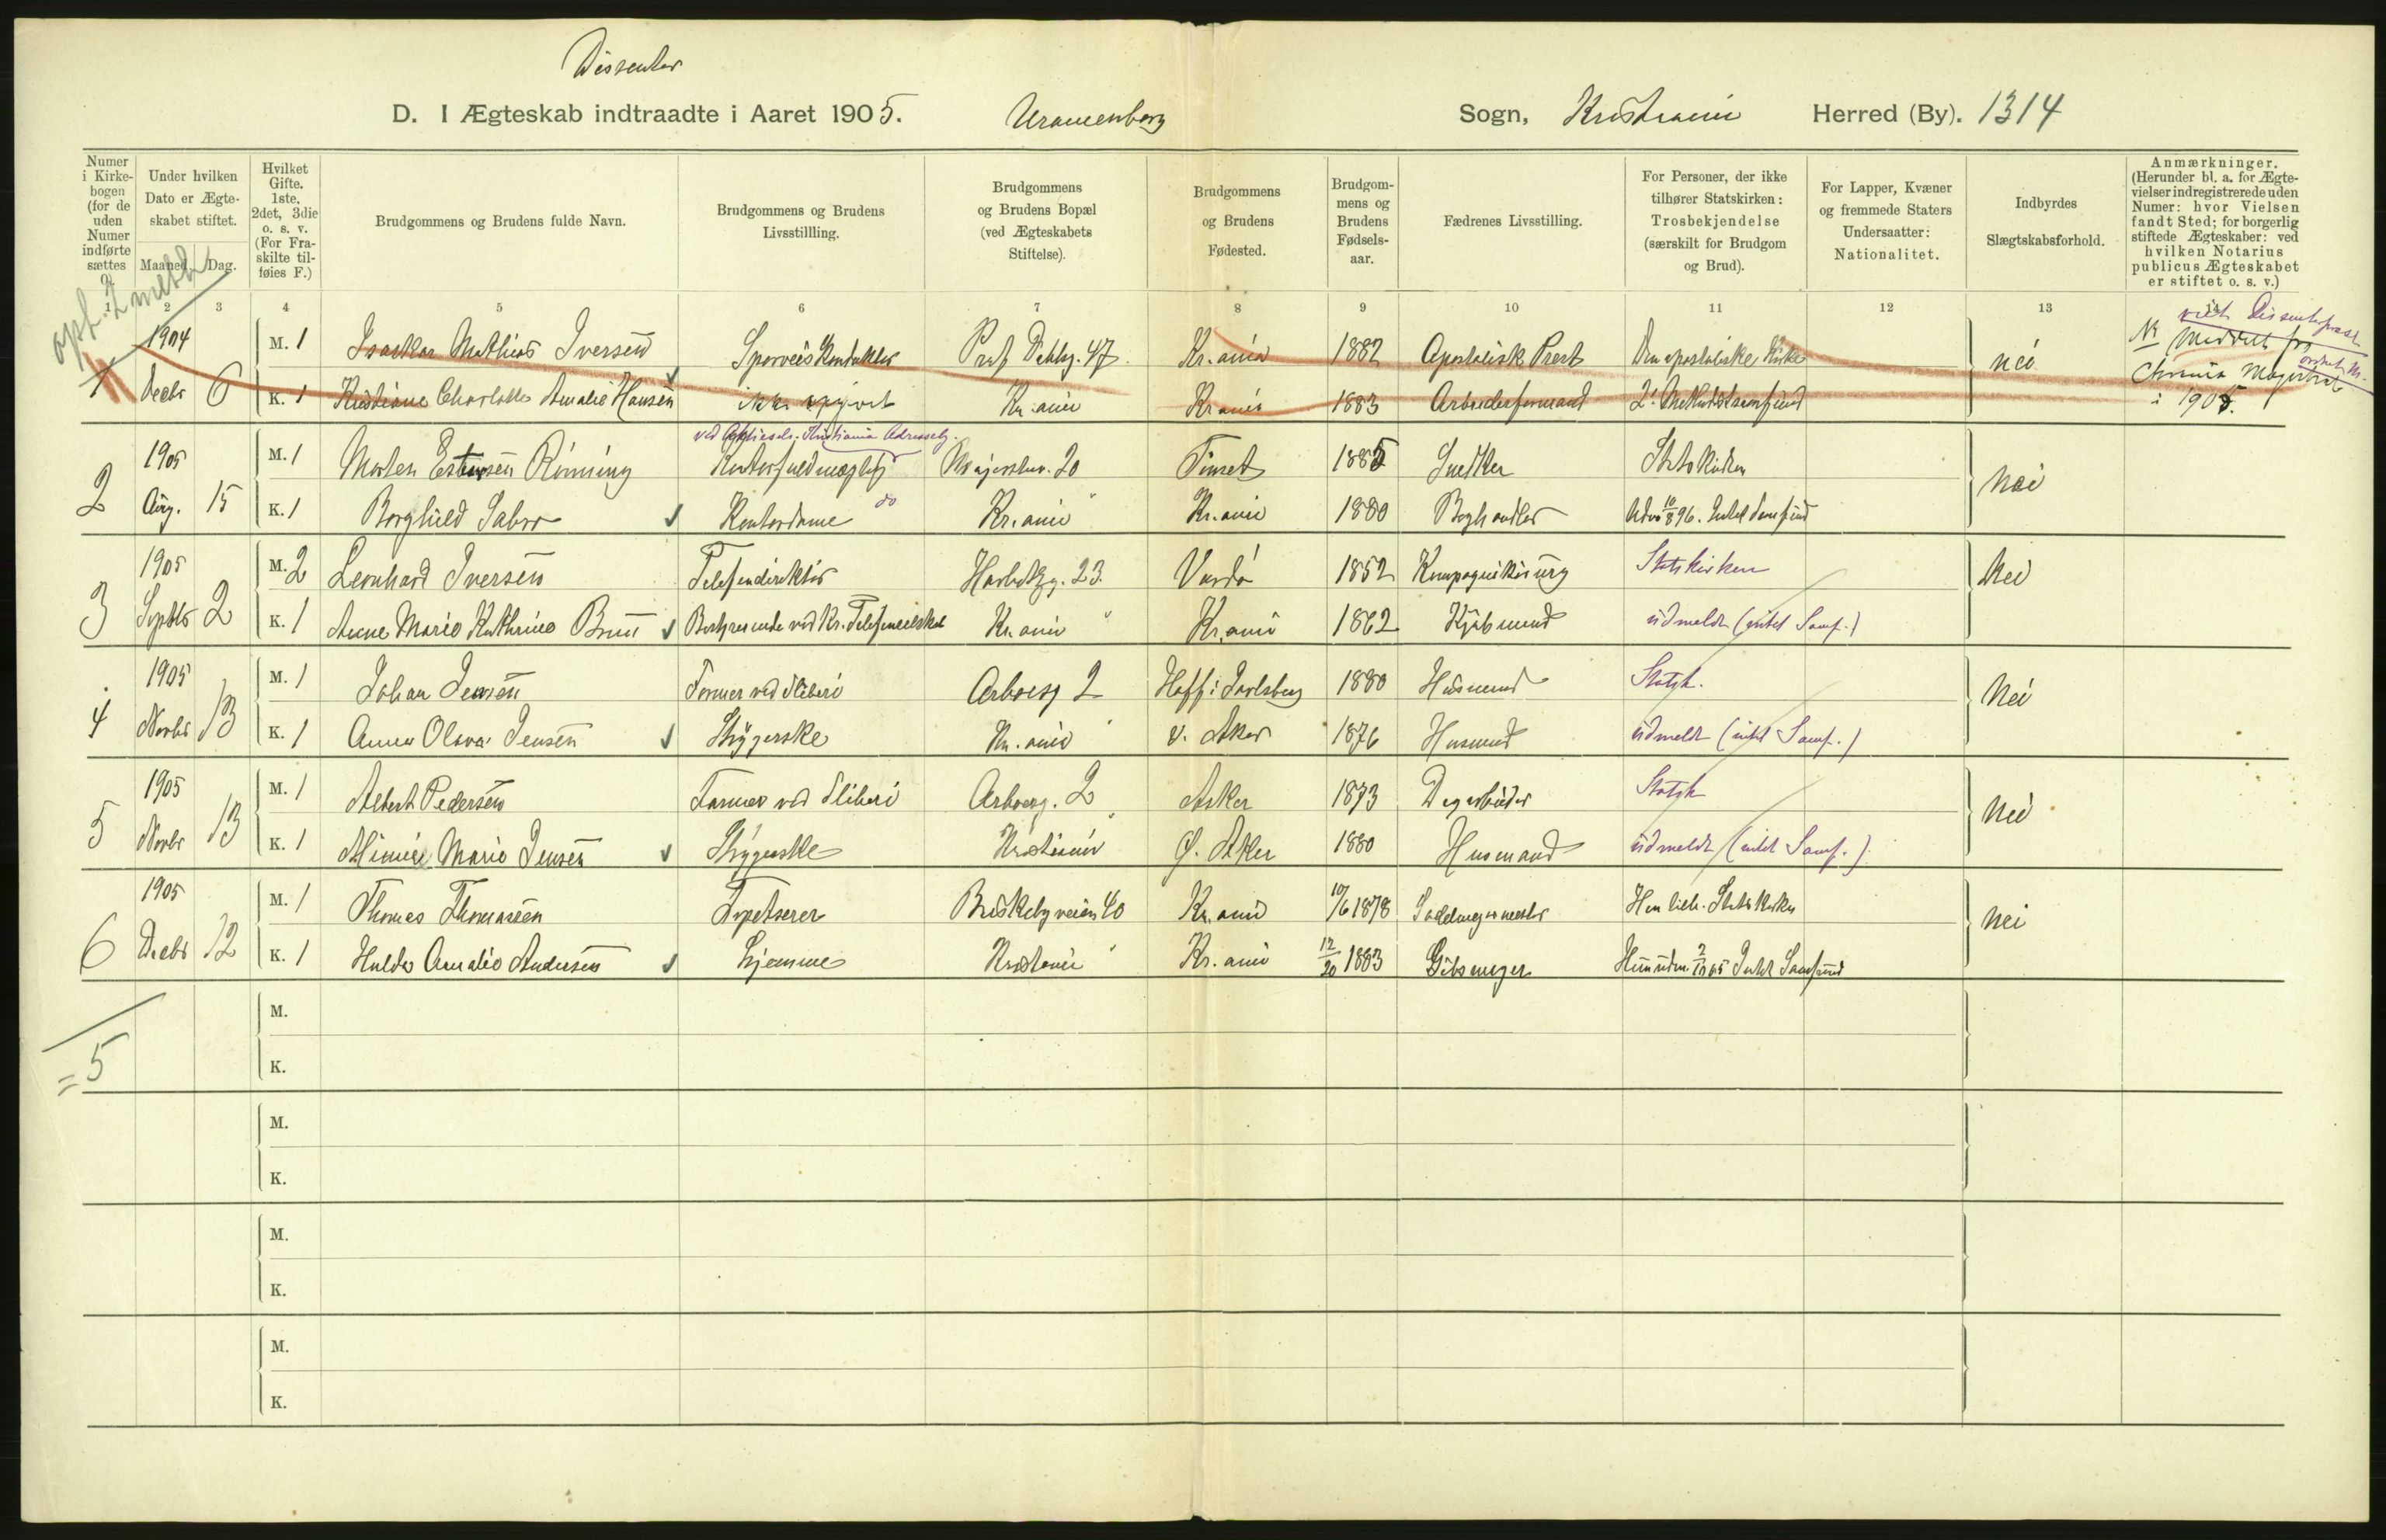 Dissenter
D. I Ægteskab indtraadte i Aaret 1905. Uranienborg Sogn, Kristiania Herred (By). 1314
Numer i Kirke-bogen (for de uden Numer indførte sættes 0).
Under hvilken Dato er Ægte-skabet stiftet.
Maaned. Dag.
Hvilket Gifte. 1ste, 2det, 3die o. s. v. (For Fra-skilte til-føies F.)
Brudgommens og Brudens fulde Navn.
Brudgommens og Brudens Livsstillling.
Brudgommens og Brudens Bopæl (ved Ægteskabets Stiftelse).
Brudgommens og Brudens Fødested.
Brudgom-mens og Brudens Fødsels-aar.
Fædrenes Livsstilling.
For Personer, der ikke tilhører Statskirken: Trosbekjendelse (særskilt for Brudgom og Brud).
For Lapper, Kvæner og fremmede Staters Undersaatter: Nationalitet.
Indbyrdes Slægtskabsforhold.
Anmærkninger. (Herunder bl. a. for Ægte-vielser indregistrerede uden Numer: hvor Vielsen fandt Sted; for borgerlig stiftede Ægteskaber: ved hvilken Notarius publicus Ægteskabet er stiftet o. s. v.)
1 2 3 4 5 6 7 8 9 10 11 12 13
1 1904 Decbr 6 M. 1 Mathias Iversen Sporveis Konduktør Prof Dahlsg. 47 Kr.ania 1882 Apostolisk Prest Den apostoliske Kirke nei
K. 1 Kristiane Charlotte Amalie Hansen ikke opgivet Kr.ania Kr.ania 1883 Arbeiderformand i 1905.
ved Kristiania Adresseb.
2 1905 Aug. 15 M. 1 Morten Estensen Rønning Kontorfuldmægtig 20 Tønset 1885 Snedker Statskirken Nei
K. 1 Borghild Sabro Kontordame do Kr.ania " Kr.ania 1880 Boghandler 10/8 96. Intet Samfund
3 1905 Septbr 2 M. 2 Leonhard Iversen Telefondirektør Harbitzg. 23. Vardø 1852 Statskirken Nei
K. 1 Anne Marie Kathrine Bruu Bestyrerinde ved Kr. Kr.ania " Kr.ania 1862 Kjøbmand udmeldt (intet Samf.)
4 1905 Novbr 13 M. 1 Johan Jensen Former ved Støberi Arboesg 2 Hoff i Jarlsberg 1880 Husmand Statsk. Nei
K. 1 Anna Olava Jensen Strygerske Kr.ania " V. Aker 1876 Husmand udmeldt (intet Samf.)
5 1905 Novbr 13 M. 1 Albert Pedersen Former ved Støberi Arboesg. 2 Asker 1873 Dagarbeider Statsk Nei
K. 1 Minnie Marie Jensen Strygerske Kristiania " Ø. Aker 1880 Husmand udmeldt (intet Samf.)
6 1905 Decbr 12 M. 1 Thomas Thomassen Tapetserer Briskebyveien 40 Kr.ania 10/6 1878 Sadelmagermester Han tilh. Statskirken nei
K. 1 Hulda Amalie Andersen Hjemme Kristiania " Kr.ania 12/20 1883 Gibsmager Hun udm. Intet Samfund
M.
K.
= 5
M.
K.
M.
K.
M.
K.